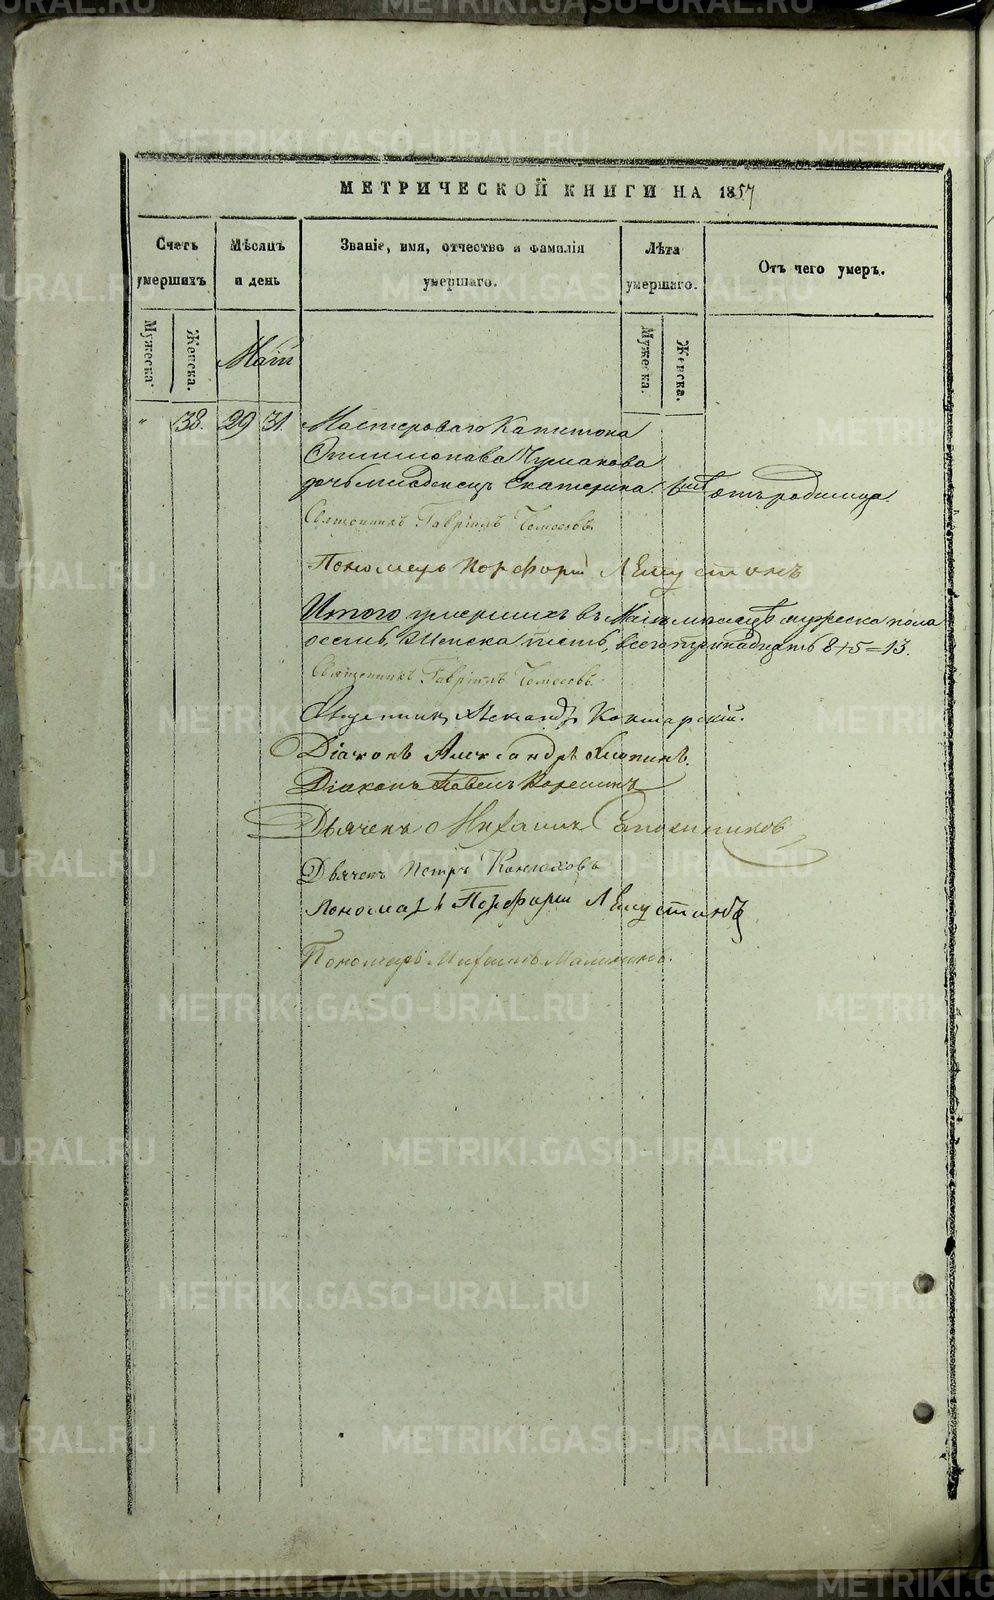 МЕТРИЧЕСКОЙ КНИГИ НА 1857
Счетъ умершихъ
Мѣсяцъ и день
Званіе, имя, отчество и фамилія умершаго.
Лѣта умершаго.
Отъ чего умеръ.
Мужеска.
Женска.
Май
Мужеска.
Женска.
" 38. 29 31. Мастероваго Капитона
Чумакова
дочь младенецъ Екатерина. отъ родимца.
Священникъ Гавріилъ
Пономарь Порфирій
Итого умершихъ въ Маѣ мѣсяцѣ мужеска пола
осемь, Женска пять, всего тринадцать 8+5=13.
Священникъ Гавріилъ
Священникъ Александръ
Діаконъ Александръ
Діаконъ Павелъ
Дьячекъ Михаилъ
Дьячекъ Петръ Конюховъ
Пономарь Порфирій
Пономарь Михаилъ Малининъ.
METRIKI.GASO-URAL.RU